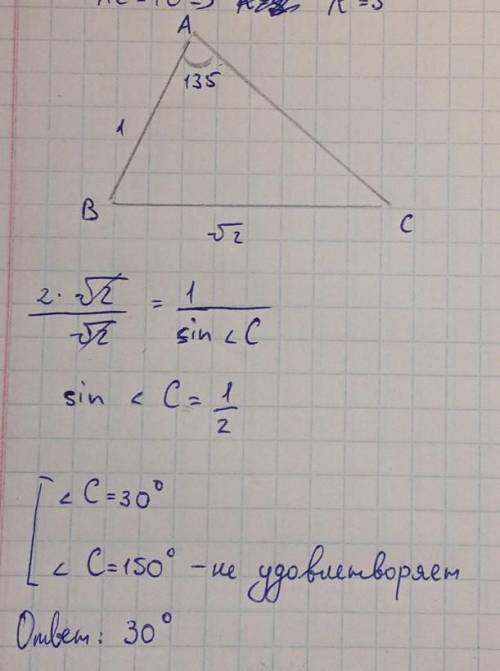 R = 5
A
135
1
B
C
√2
2 · √2 / √2 = 1 / sin < C
sin < C = 1/2
< C = 30°
< C = 150° – не удовлетворяет
Ответ: 30°